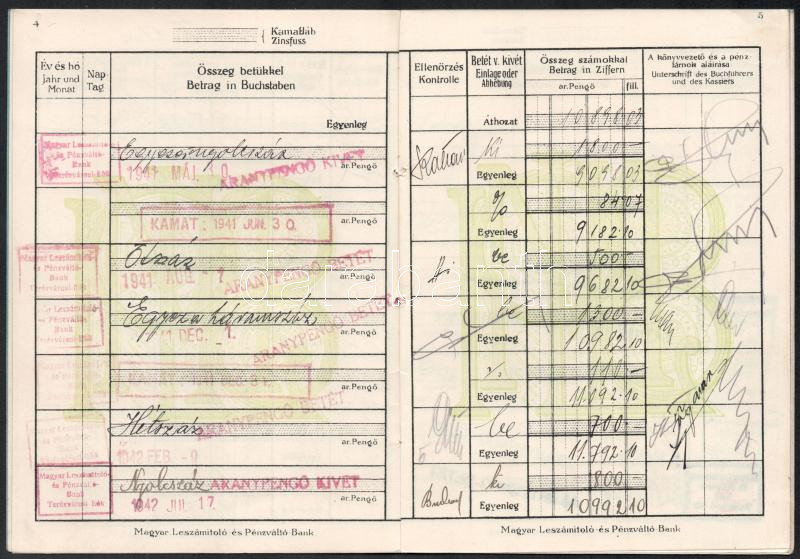 4
Kamatláb
Zinsfuss
Év és hó
Jahr und
Monat
Nap
Tag
Összeg betükkel
Betrag in Buchstaben
Egyenleg
Magyar Leszámitoló
és Pénzváltó-
Bank
Terézvárosi fiók
Egyezernyolcszáz
1941 MÁJ. 10.
ARANYPENGŐ KIVÉT
ar.Pengő
KAMAT: 1941 JUN. 30.
ar.Pengő
Magyar Leszámitoló
és Pénzváltó-
Bank
Terézvárosi fiók
Ötszáz
1941 AUG. - 1
ARANYPENGŐ BETÉT
ar.Pengő
és Pénzváltó-
Bank
Terézvárosi fiók
Egyezerháromszáz
DEC. 1.
ARANYPENGŐ BETÉT
ar.Pengő
KAMAT:
ar.Pengő
Hétszáz
1942 FEB - 9
ARANYPENGŐ BETÉT
ar.Pengő
Magyar Leszámitoló
és Pénzváltó-
Bank
Terézvárosi fiók
Nyolcszáz
1942 JUL 17
ARANYPENGŐ KIVÉT
ar.Pengő
Magyar Leszámitoló-és Pénzváltó-Bank
5
Ellenőrzés
Kontrolle
Betét v. kivét
Einlage oder
Abhebung
Összeg számokkal
Betrag in Ziffern
ar.Pengő
fill.
A könyvvezető és a pénz-
tárnok aláirása
Unterschrift des Buchführers
und des Kassiers
Áthozat 10.898.03
ki 1800.-
Egyenleg 9098.03
% 84.07
Egyenleg 9182.10
be 500.-
Egyenleg 9682.10
be 1300.-
Egyenleg 10982.10
%. 110.-
Egyenleg 11.092.10
be 700.-
Egyenleg 11.792.10
ki 800.-
Egyenleg 10992.10
Magyar Leszámitoló-és Pénzváltó-Bank
darabanth